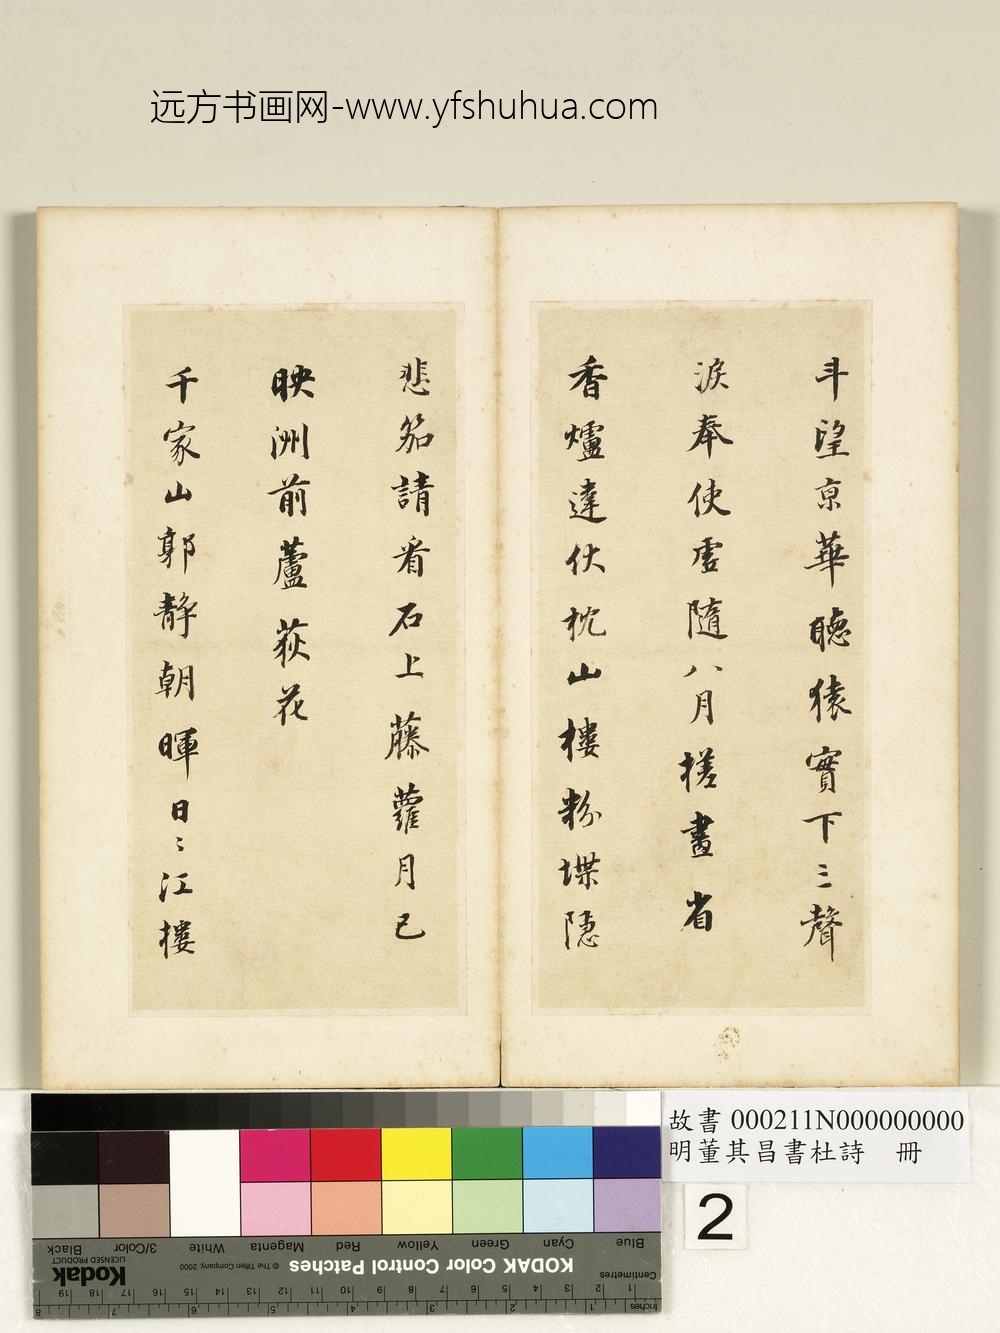 远方书画网-www.yfshuhua.com
斗望京華聽猿實下三聲
淚奉使虛隨八月槎畫省
香爐違伏枕山樓粉堞隱
悲笳請看石上藤蘿月已
映洲前蘆荻花
千家山郭静朝暉日〻江樓
故書 000211N000000000
明董其昌書杜詩 冊
2
Blue Cyan Green Yellow Red Magenta White 3/Color Black
KODAK Color Control Patches
© The Tiffen Company, 2000
Kodak
LICENSED PRODUCT
Centimetres
1 2 3 4 5 6 7 8 9 10 11 12 13 14 15 16 17 18 19
Inches
1 2 3 4 5 6 7 8